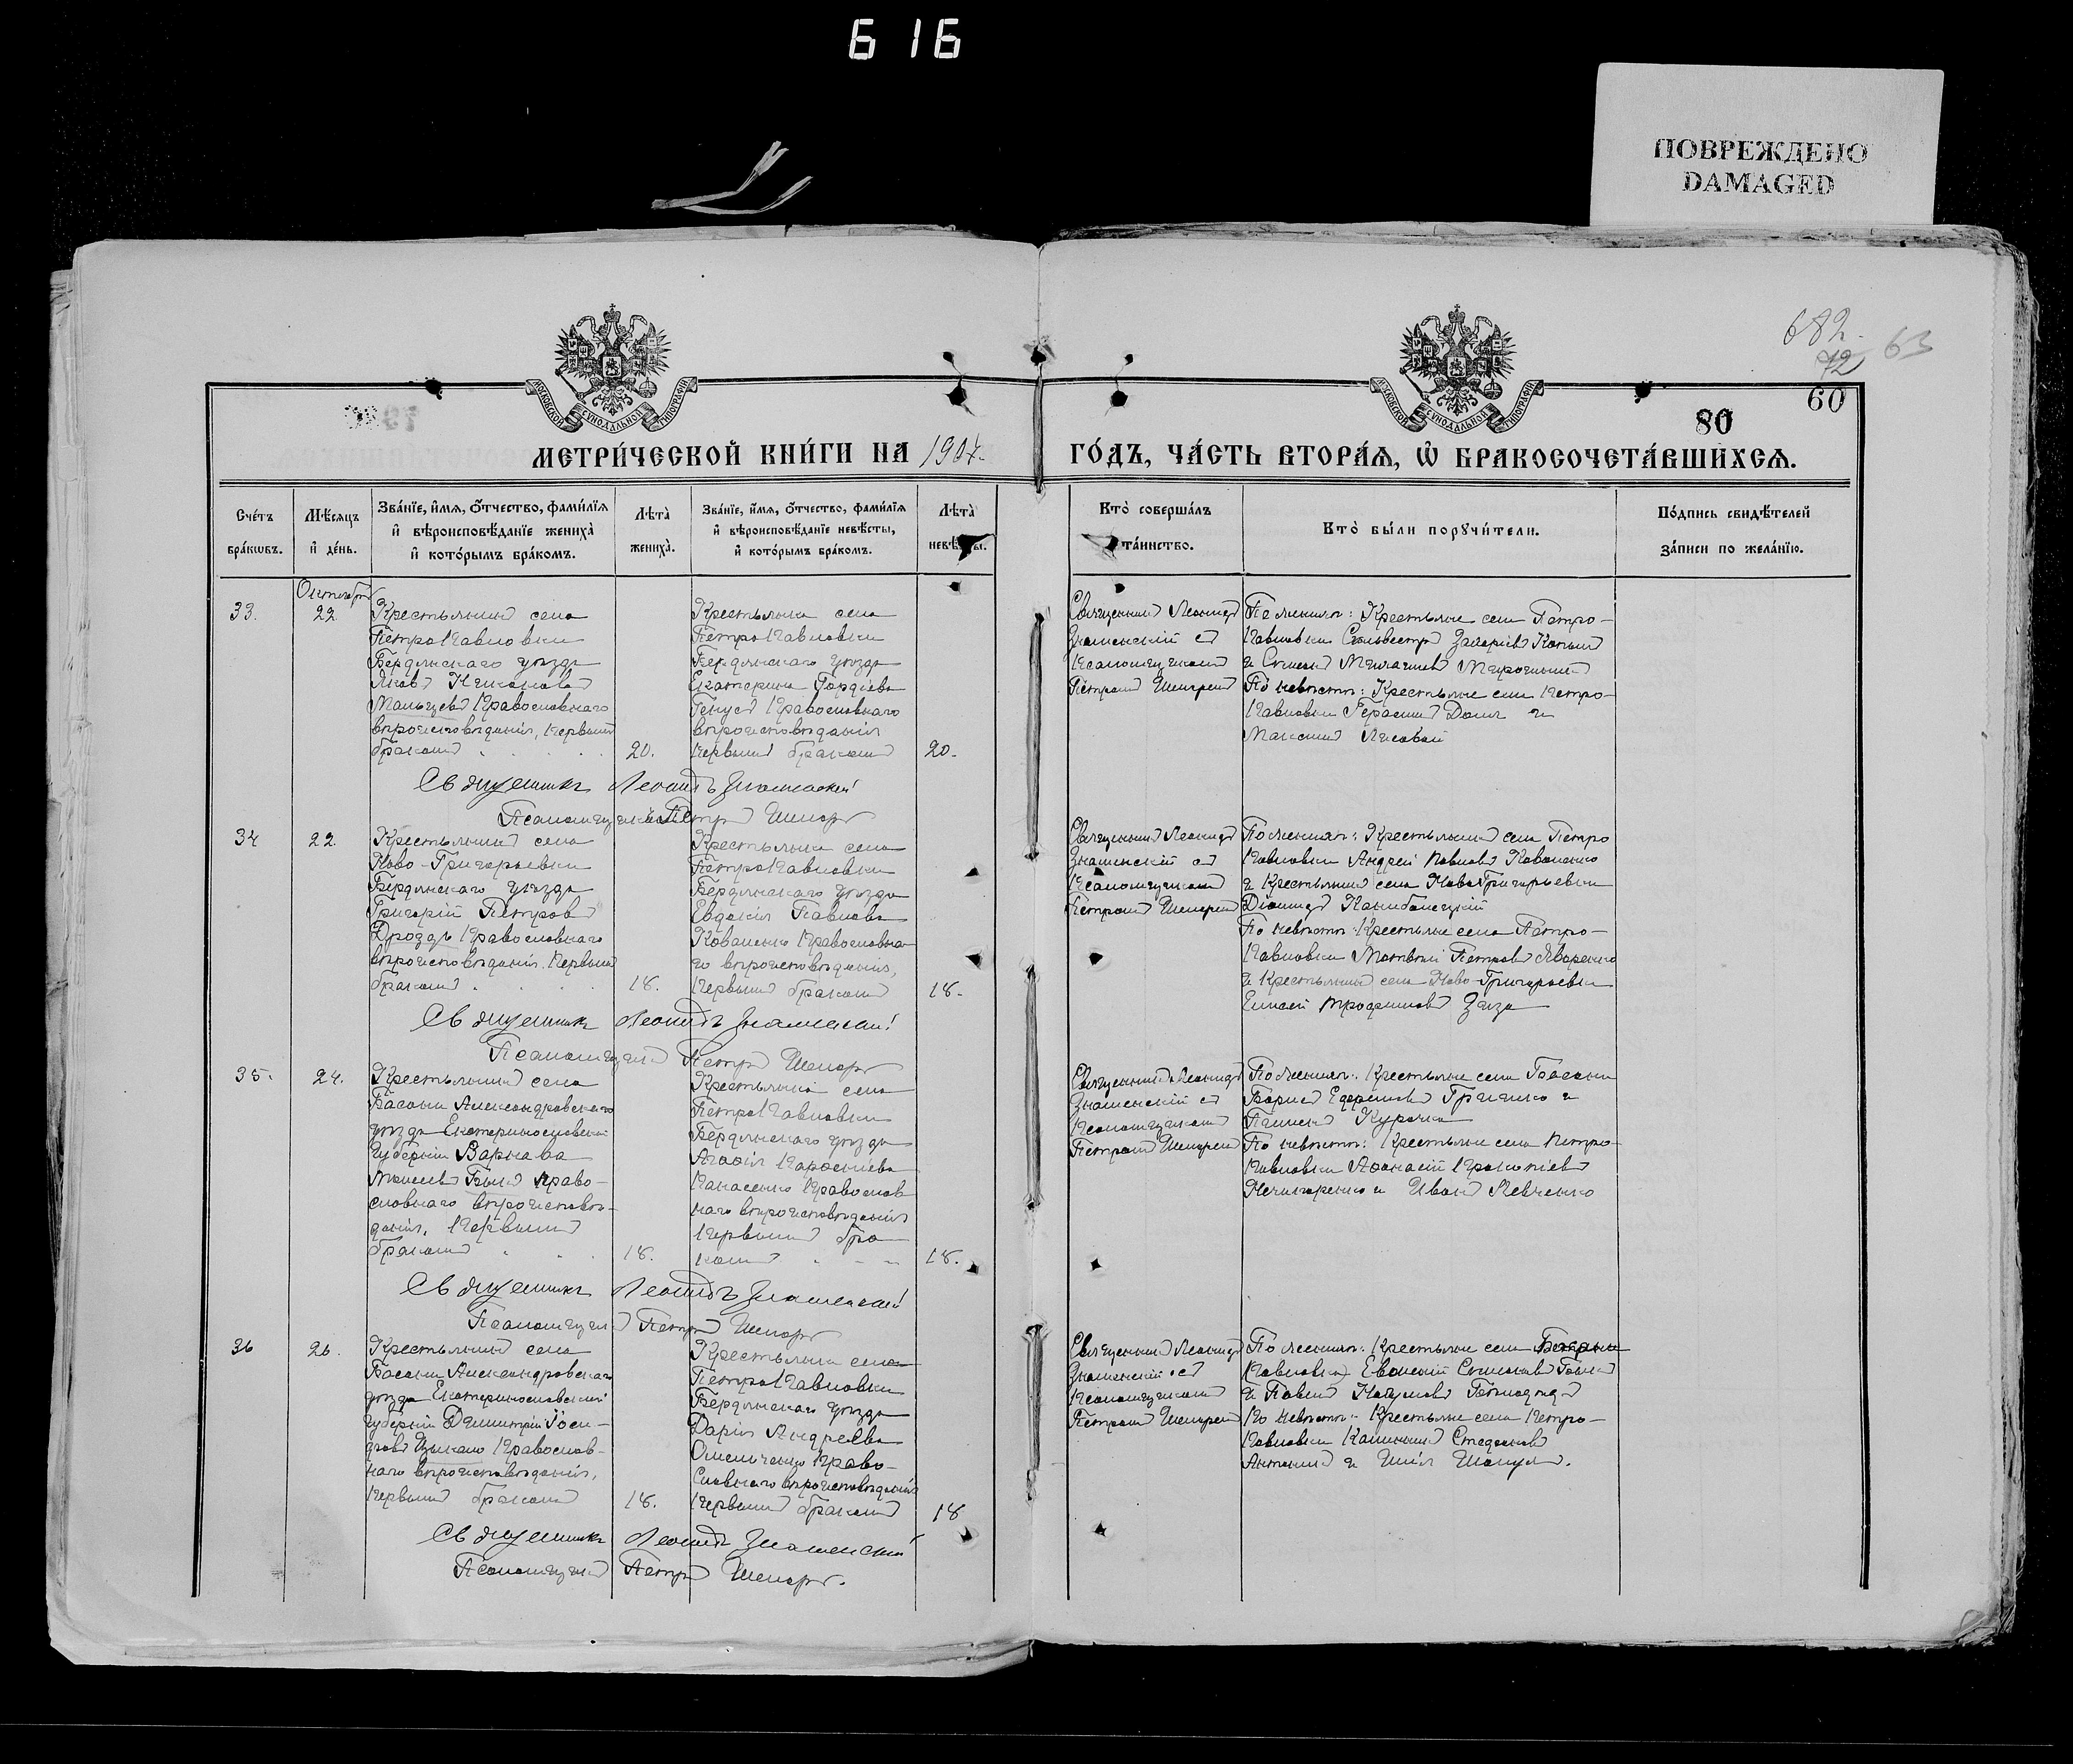 616
ПОВРЕЖДЕНО
DAMAGED
682.
72 63
60
80
МОСКОВСКОЙ СѴНОДАЛЬНОЙ ТИПОГРАФІИ
МОСКОВСКОЙ СѴНОДАЛЬНОЙ ТИПОГРАФІИ
МЕТРИ́ЧЕСКОЙ КНИ́ГИ НА 1904 ГО́ДЪ, ЧА́СТЬ ВТОРА́Я, Ѡ҆ БРАКОСОЧЕТА́ВШИХСЯ.
Сче́тъ бра́кѡвъ.
Мѣ́сяцъ и҆ де́нь.
Зва́нїе, и҆́мя, ѻ҆́тчество, фами́лїя
и҆ вѣроисповѣ́данїе жениха̀
и҆ кото́рымъ бра́комъ.
Лѣта̀ жениха̀.
Зва́нїе, и҆́мя, ѻ҆́тчество, фами́лїя
и҆ вѣроисповѣ́данїе невѣ́сты,
и҆ кото́рымъ бра́комъ.
Лѣта̀ невѣ́сты.
Кто̀ соверша́лъ
та́инство.
Кто̀ бы́ли порꙋчи́тели.
По́дпись свидѣ́телей
за́писи по жела́нїю.
Октября
33.
22
Крестьянинъ села
Петропавловки
Бердянскаго уѣзда
Яковъ
Мальцевъ Православнаго
вѣроисповѣданія, первымъ
бракомъ
20.
Крестьянка села
Петропавловки
Бердянскаго уѣзда
Екатерина Гордіева
Православнаго
вѣроисповѣданія
первымъ бракомъ
20.
Священникъ Леонидъ
Знаменскій съ
псаломщикомъ
Петромъ
По женихѣ: Крестьяне села Петро-
павловки Сильвестръ Захаріевъ
и
По невѣстѣ: Крестьяне села Петро-
павловки Герасимъ и
Максимъ Лисовой
Священникъ Леонидъ Знаменскій
Псаломщикъ Петръ
34
22.
Крестьянинъ села
Ново-Григорьевки
Бердянскаго уѣзда
Григорій Петровъ
Дроздъ Православнаго
вѣроисповѣданія. Первымъ
бракомъ
18.
Крестьянка села
Петропавловки
Бердянскаго уѣзда
Евдокія Павлова
Коваленко Православна-
го вѣроисповѣданія,
первымъ бракомъ
18.
Священникъ Леонидъ
Знаменскій съ
псаломщикомъ
Петромъ
По женихѣ: Крестьянинъ села Петро
павловки Андрей Павловъ Коваленко
и Крестьянинъ села Ново Григорьевки
Діомидъ
По невѣстѣ: Крестьяне села Петро-
павловки Матвѣй Петровъ Яворенко
и Крестьянинъ села Ново-Григорьевки
Елисей Трофимовъ Заяза
Священникъ Леонидъ Знаменскій
Псаломщикъ Петръ
35.
24.
Крестьянинъ села
Басани Александровскаго
уѣзда Екатеринославской
губерніи Варнава
Быкъ право-
славнаго вѣроисповѣ-
данія, первымъ
бракомъ
18.
Крестьянка села
Петропавловки
Бердянскаго уѣзда
Агафія
Панасенко Православ
наго вѣроисповѣданія
первымъ бра
комъ
18.
Священникъ Леонидъ
Знаменскій съ
псаломщикомъ
Петромъ
По женихѣ: Крестьяне села Басани
Борисъ Ефремовъ Гришко и
Курочка
По невѣстѣ: Крестьяне села Петро-
павловки Афанасій Прокопіевъ
Нечипоренко и Иванъ Левченко
Священникъ Леонидъ Знаменскій
Псаломщикъ Петръ
36
26.
Крестьянинъ села
Басани Александровскаго
уѣзда Екатеринославской
губерніи Димитрій
Православ-
наго вѣроисповѣданія,
первымъ бракомъ
18.
Крестьянка села
Петропавловки
Бердянскаго уѣзда
Дарія Андреева
Омельченко Право-
славнаго вѣроисповѣданія
первымъ бракомъ
18
Священникъ Леонидъ
Знаменскій съ
псаломщикомъ
Петромъ
По женихѣ: Крестьяне села
и Павелъ Наумовъ
По невѣстѣ: Крестьяне села Петро-
павловки Стефановъ
и Шапуля.
Священникъ Леонидъ Знаменскій
Псаломщикъ Петръ